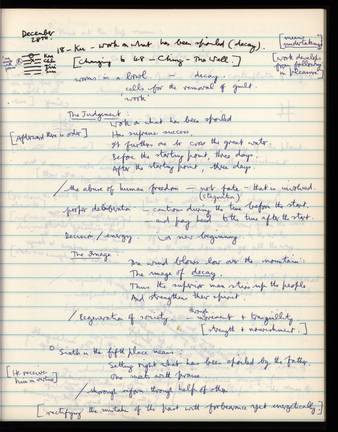 December
28th
18 - Ku - work on what has been spoiled (decay).
[means undertaking]
[changing to 48 - Ching - The Well.]
[work develops from following in pleasure]
worms in a bowl - decay.
calls for the removal of guilt.
'work'
The Judgment.
Work on what has been spoiled
[Afterward there is order]
Has supreme success.
It furthers one to cross the great water.
Before the starting point, three days.
After the starting point, three days.
/ the abuse of human freedom - not fate - that is involved.
proper deliberation - caution during the time before the start.
- and pay heed to the time after the start.
Decision / energy. a new beginning.
The Image
The wind blows low on the mountain:
The image of decay.
Thus the superior man stirs up the people
And strengthens their spirit.
/ Regeneration of society - through movement & tranquility
[strength & nourishment.]
Six in the fifth place means:
Setting right what has been spoiled by the father.
One meets with praise
/ through reform through help of others
[rectifying the mistakes of the past with forbearance yet energetically.]